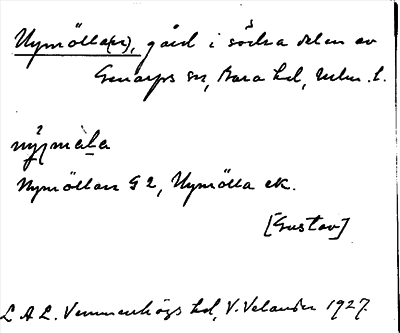 Nymölla(n), gård i södra delen av
Genarps sn, Bara hd, Mlm. l.
Nymöllan G 2, Nymölla ek.
[Gustav]
L A L. Vemmenhögs hd, V. Velander 1927.